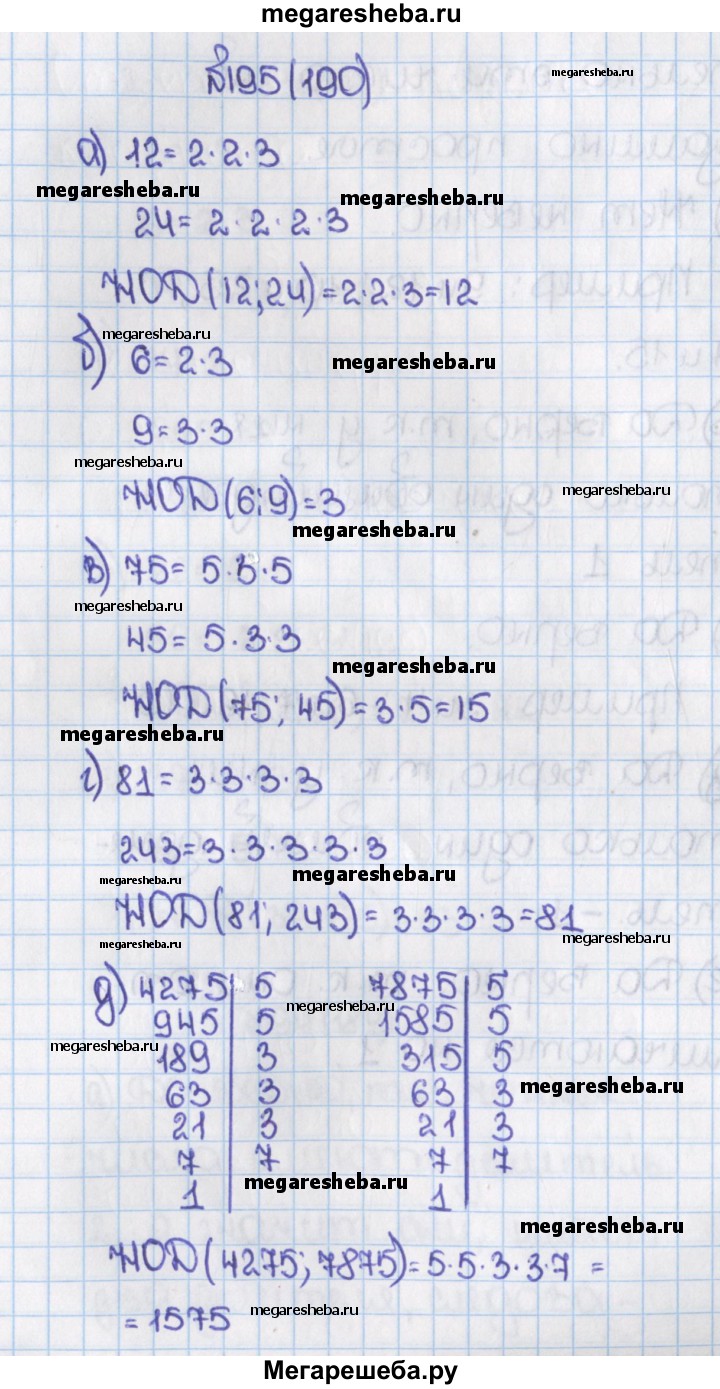 megaresheba.ru
№195(190)
megaresheba.ru
а) 12 = 2·2·3
megaresheba.ru
megaresheba.ru
24 = 2·2·2·3
НОД(12;24)=2·2·3=12
megaresheba.ru
б) 6=2·3
megaresheba.ru
9=3·3
megaresheba.ru
НОД(6;9)=3
megaresheba.ru
megaresheba.ru
в) 75= 5·3·5
megaresheba.ru
45= 5·3·3
megaresheba.ru
НОД(75; 45)=3·5=15
megaresheba.ru
г) 81= 3·3·3·3
243=3·3·3·3·3
megaresheba.ru
megaresheba.ru
НОД(81; 243)= 3·3·3·3=81
megaresheba.ru
д) 4275 | 5 7875 | 5
megaresheba.ru
945 | 5 1585 | 5
megaresheba.ru
189 | 3 315 | 5
megaresheba.ru
63 | 3 63 | 3
21 | 3 21 | 3
7 | 7 7 | 7
megaresheba.ru
1 | 1 |
megaresheba.ru
НОД(4275; 7875)=5·5·3·3·7 =
= 1575
megaresheba.ru
Мегарешеба.ру